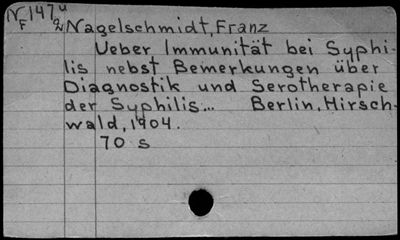 N147u
F 2 Nagelschmidt, Franz
Ueber Immunität bei Syphi-
lis nebst Bemerkungen über
Diagnostik und Serotherapie
der Syphilis... Berlin, Hirsch-
wald, 1904.
70 s